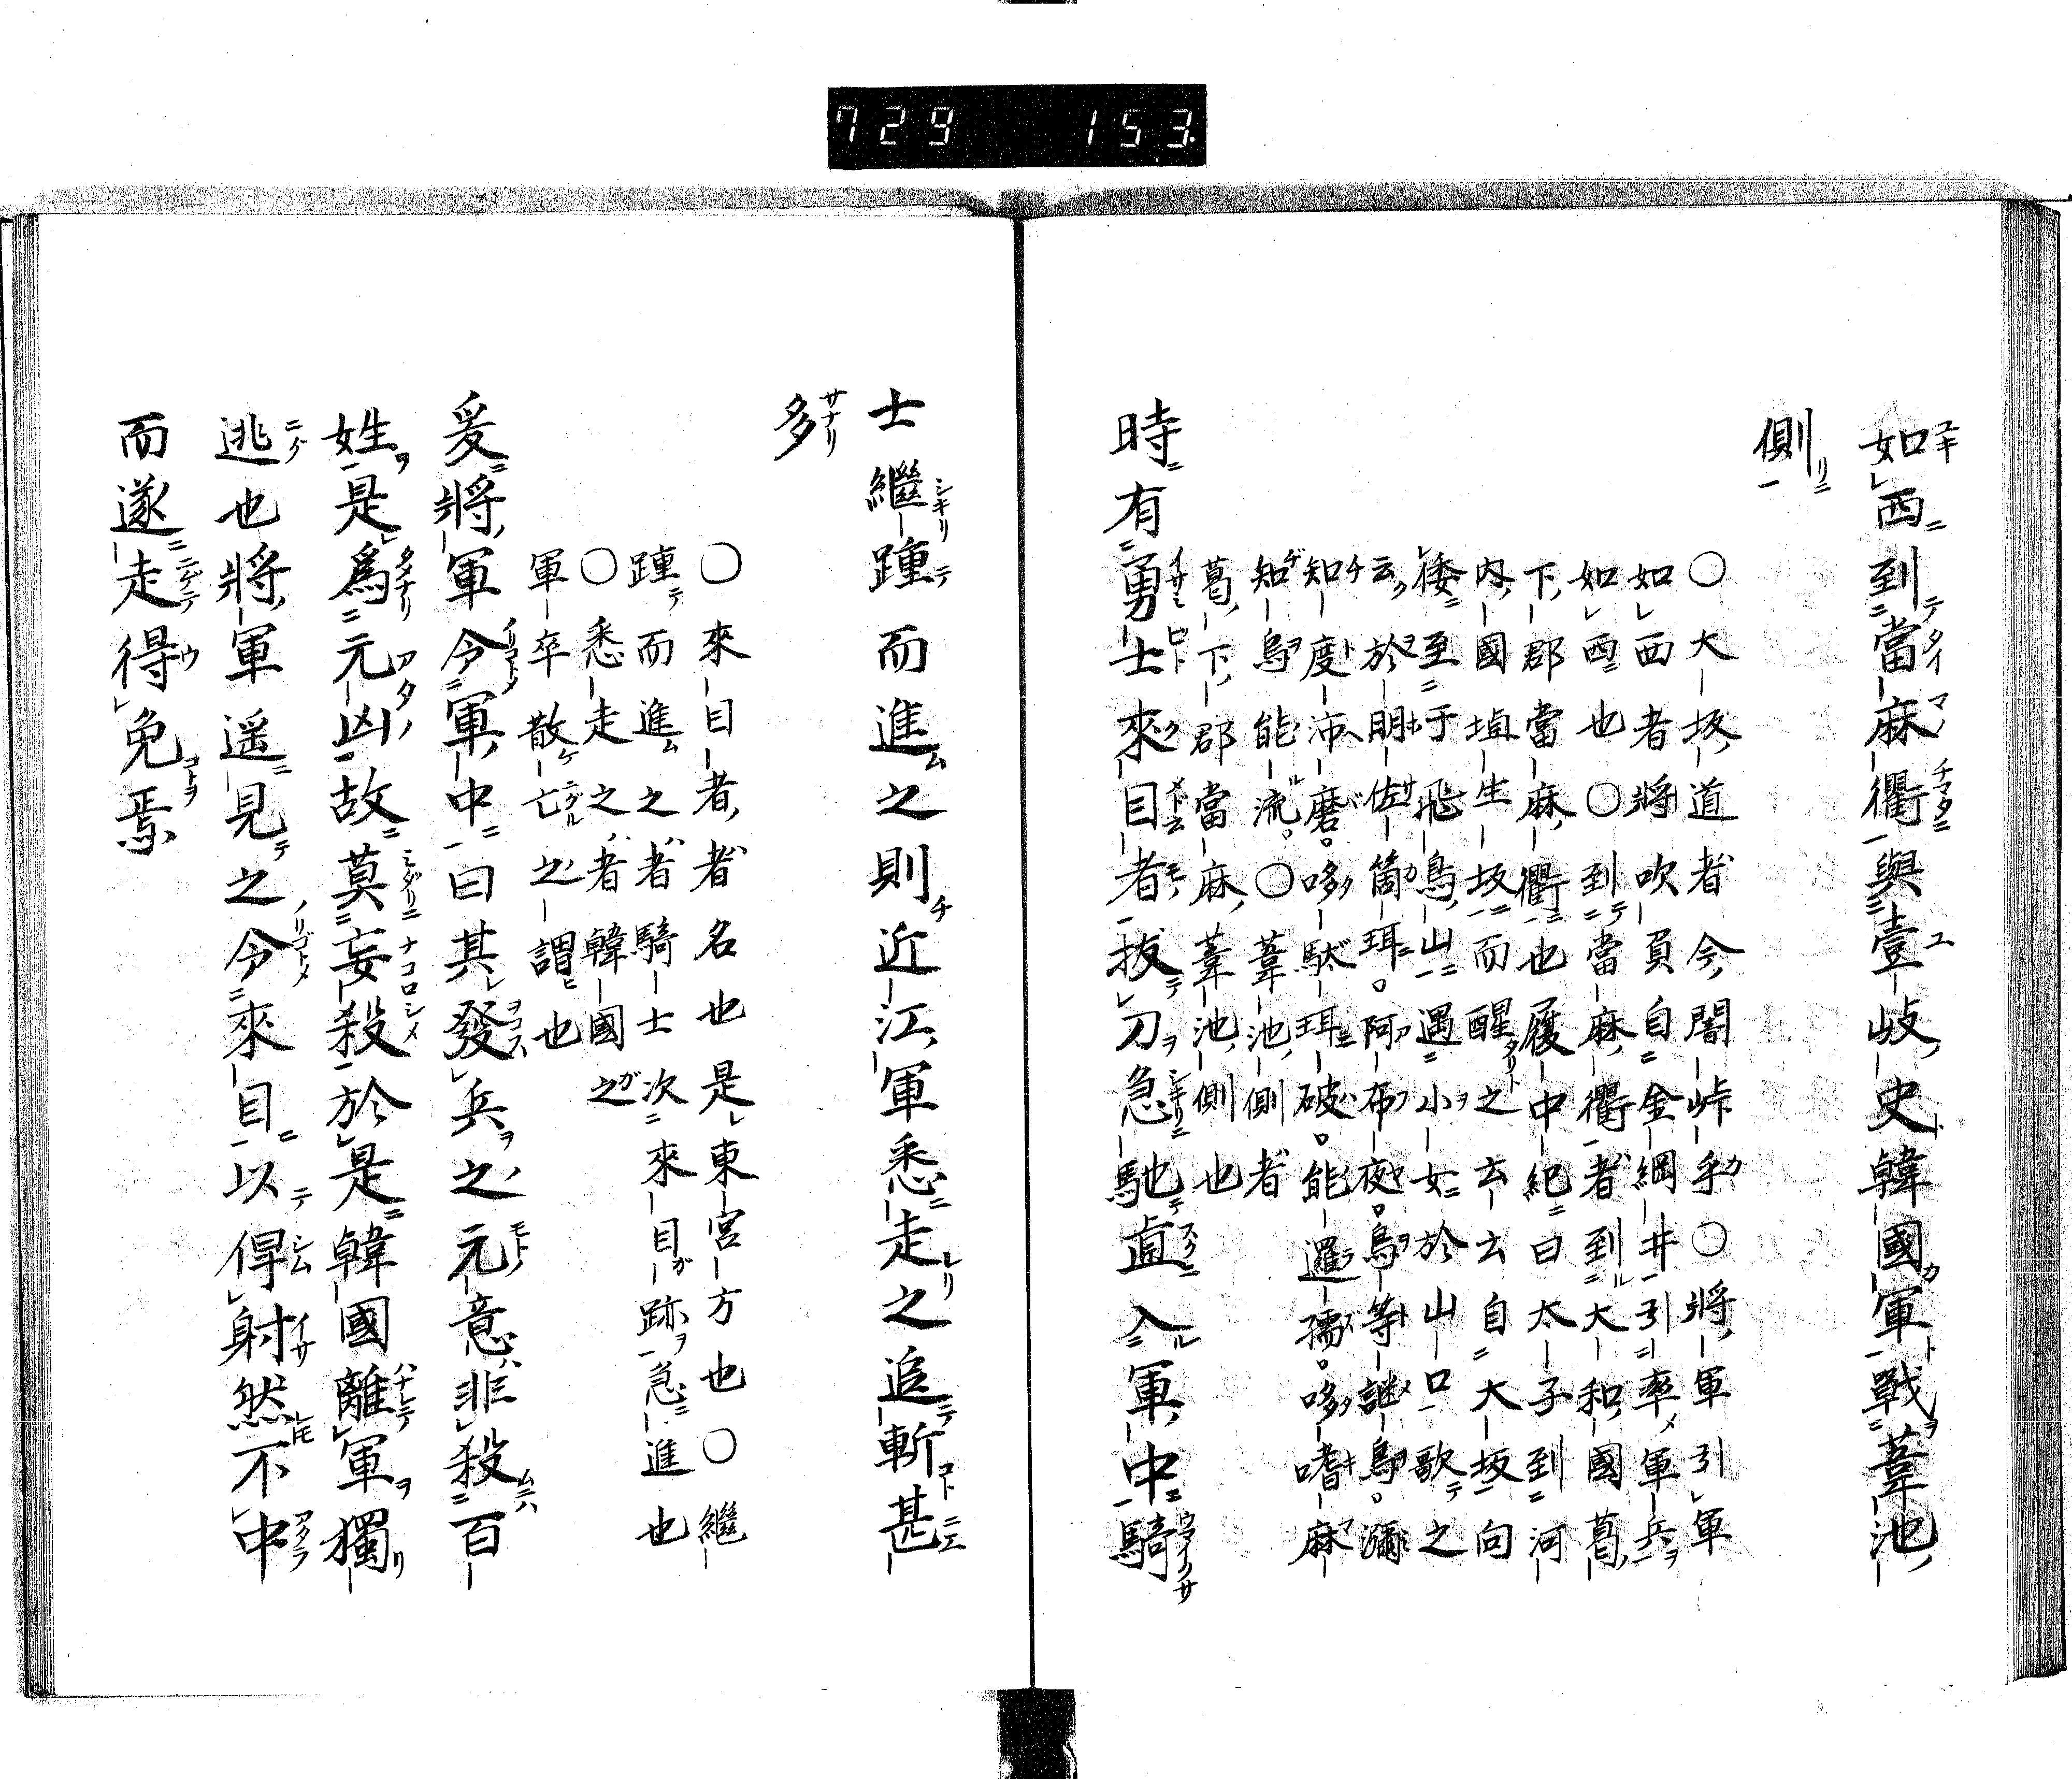 729 153.
如西到當麻衢與壹岐史韓國軍戰葦池
側
〇大坂道者今闇峠乎〇將軍引軍
如西者將吹負自金綱井引率軍兵
如西也〇到當麻衢者到大和國葛
下郡當麻衢也履中紀曰太子到河
内國埴生坂而醒之云云自大坂向
倭至于飛鳥山遇小女於山口歌之
云於朋佐箇珥阿布夜烏等謎烏瀰
知度沛磨哆駄珥破能邏孺哆嗜麻
知烏能流〇葦池側者
葛下郡當麻葦池側也
時有勇士來目者拔刀急馳直入軍中騎
士繼踵而進之則近江軍悉走之追斬甚
多
〇來目者者名也是東宮方也〇繼
踵而進之者騎士次來目跡急進也
〇悉走之者韓國之
軍卒散亡之謂也
爰將軍令軍中曰其發兵之元意非殺百
姓是爲元凶故莫妄殺於是韓國離軍獨
逃也將軍遥見之令來目以俾射然不中
而遂走得免焉